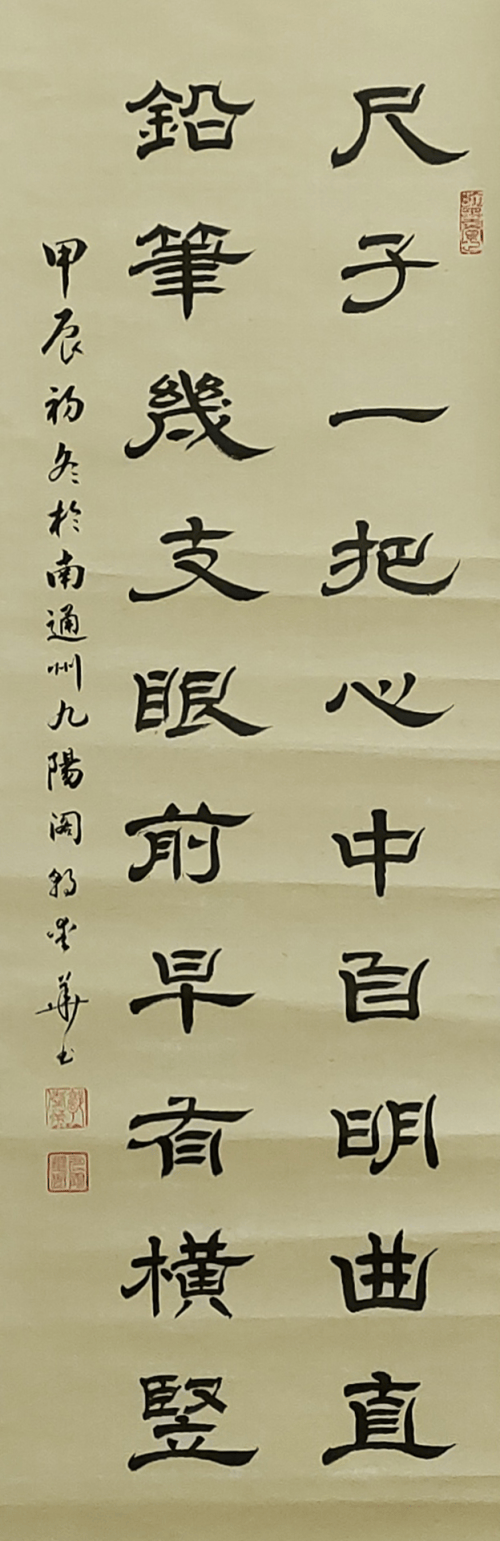 尺子一把心中自明曲直
鉛筆幾支眼前早有橫豎
甲辰初冬於南通州九陽阁
華書